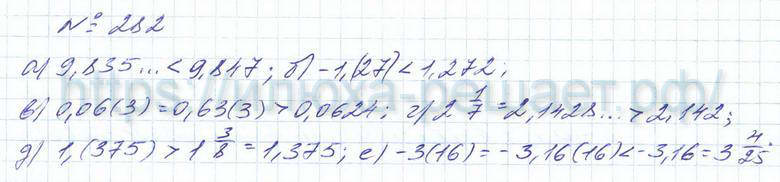 № 282
а) 9,835... < 9,847; б) -1,(27) < 1,272;
в) 0,06(3) = 0,63(3) > 0,0624; г) 2 1/7 = 2,1428... > 2,142;
д) 1,(375) > 1 3/8 = 1,375; е) -3(16) = -3,16(16) < -3,16 = 3 4/25.
https://www.илюха-решает.рф/